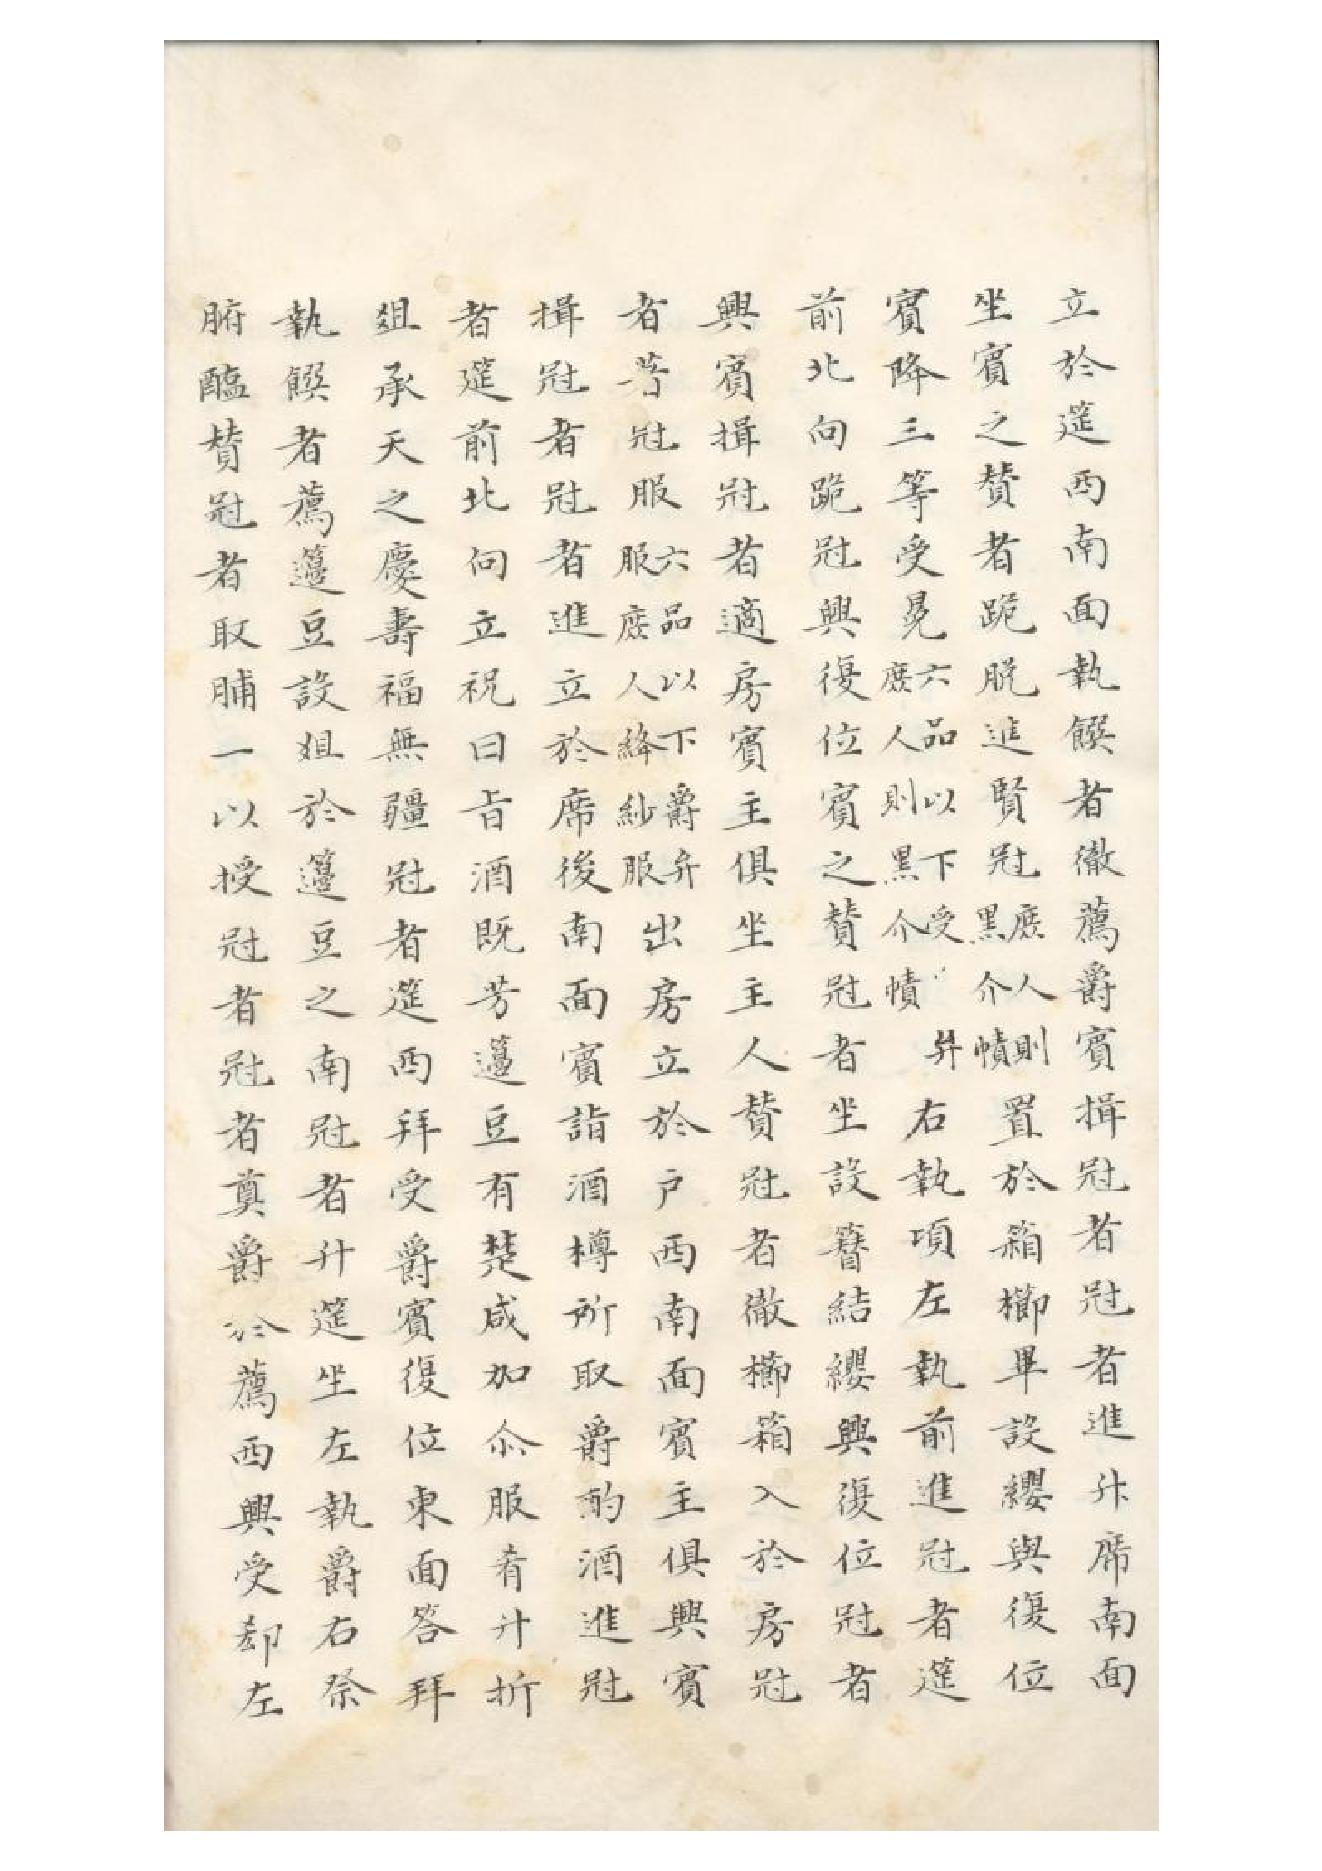 立於筵西南面執饌者徹薦爵賓揖冠者冠者進升席南面
坐賓之賛者跪脱進賢冠庶人則黑介幘置於箱櫛畢設纓與復位
賓降三等受冕六品以下受庶人則黑介幘右執項左執前進冠者筵
前北向跪冠興復位賓之賛冠者坐設簪結纓興復位冠者
興賓揖冠者適房賓主俱坐主人賛冠者徹櫛箱入於房冠
者著冠服六品以下爵弁服庶人絳紗服出房立於户西南面賓主俱興賓
揖冠者冠者進立於席後南面賓詣酒樽所取爵酌酒進冠
者筵前北向立祝曰旨酒既芳籩豆有楚咸加尒服肴升折
俎承天之慶壽福無疆冠者筵西拜受爵賓復位東面答拜
執饌者薦籩豆設俎於籩豆之南冠者升筵坐左執爵右祭
脯醢賛冠者取脯一以授冠者冠者奠爵於薦西興受却左